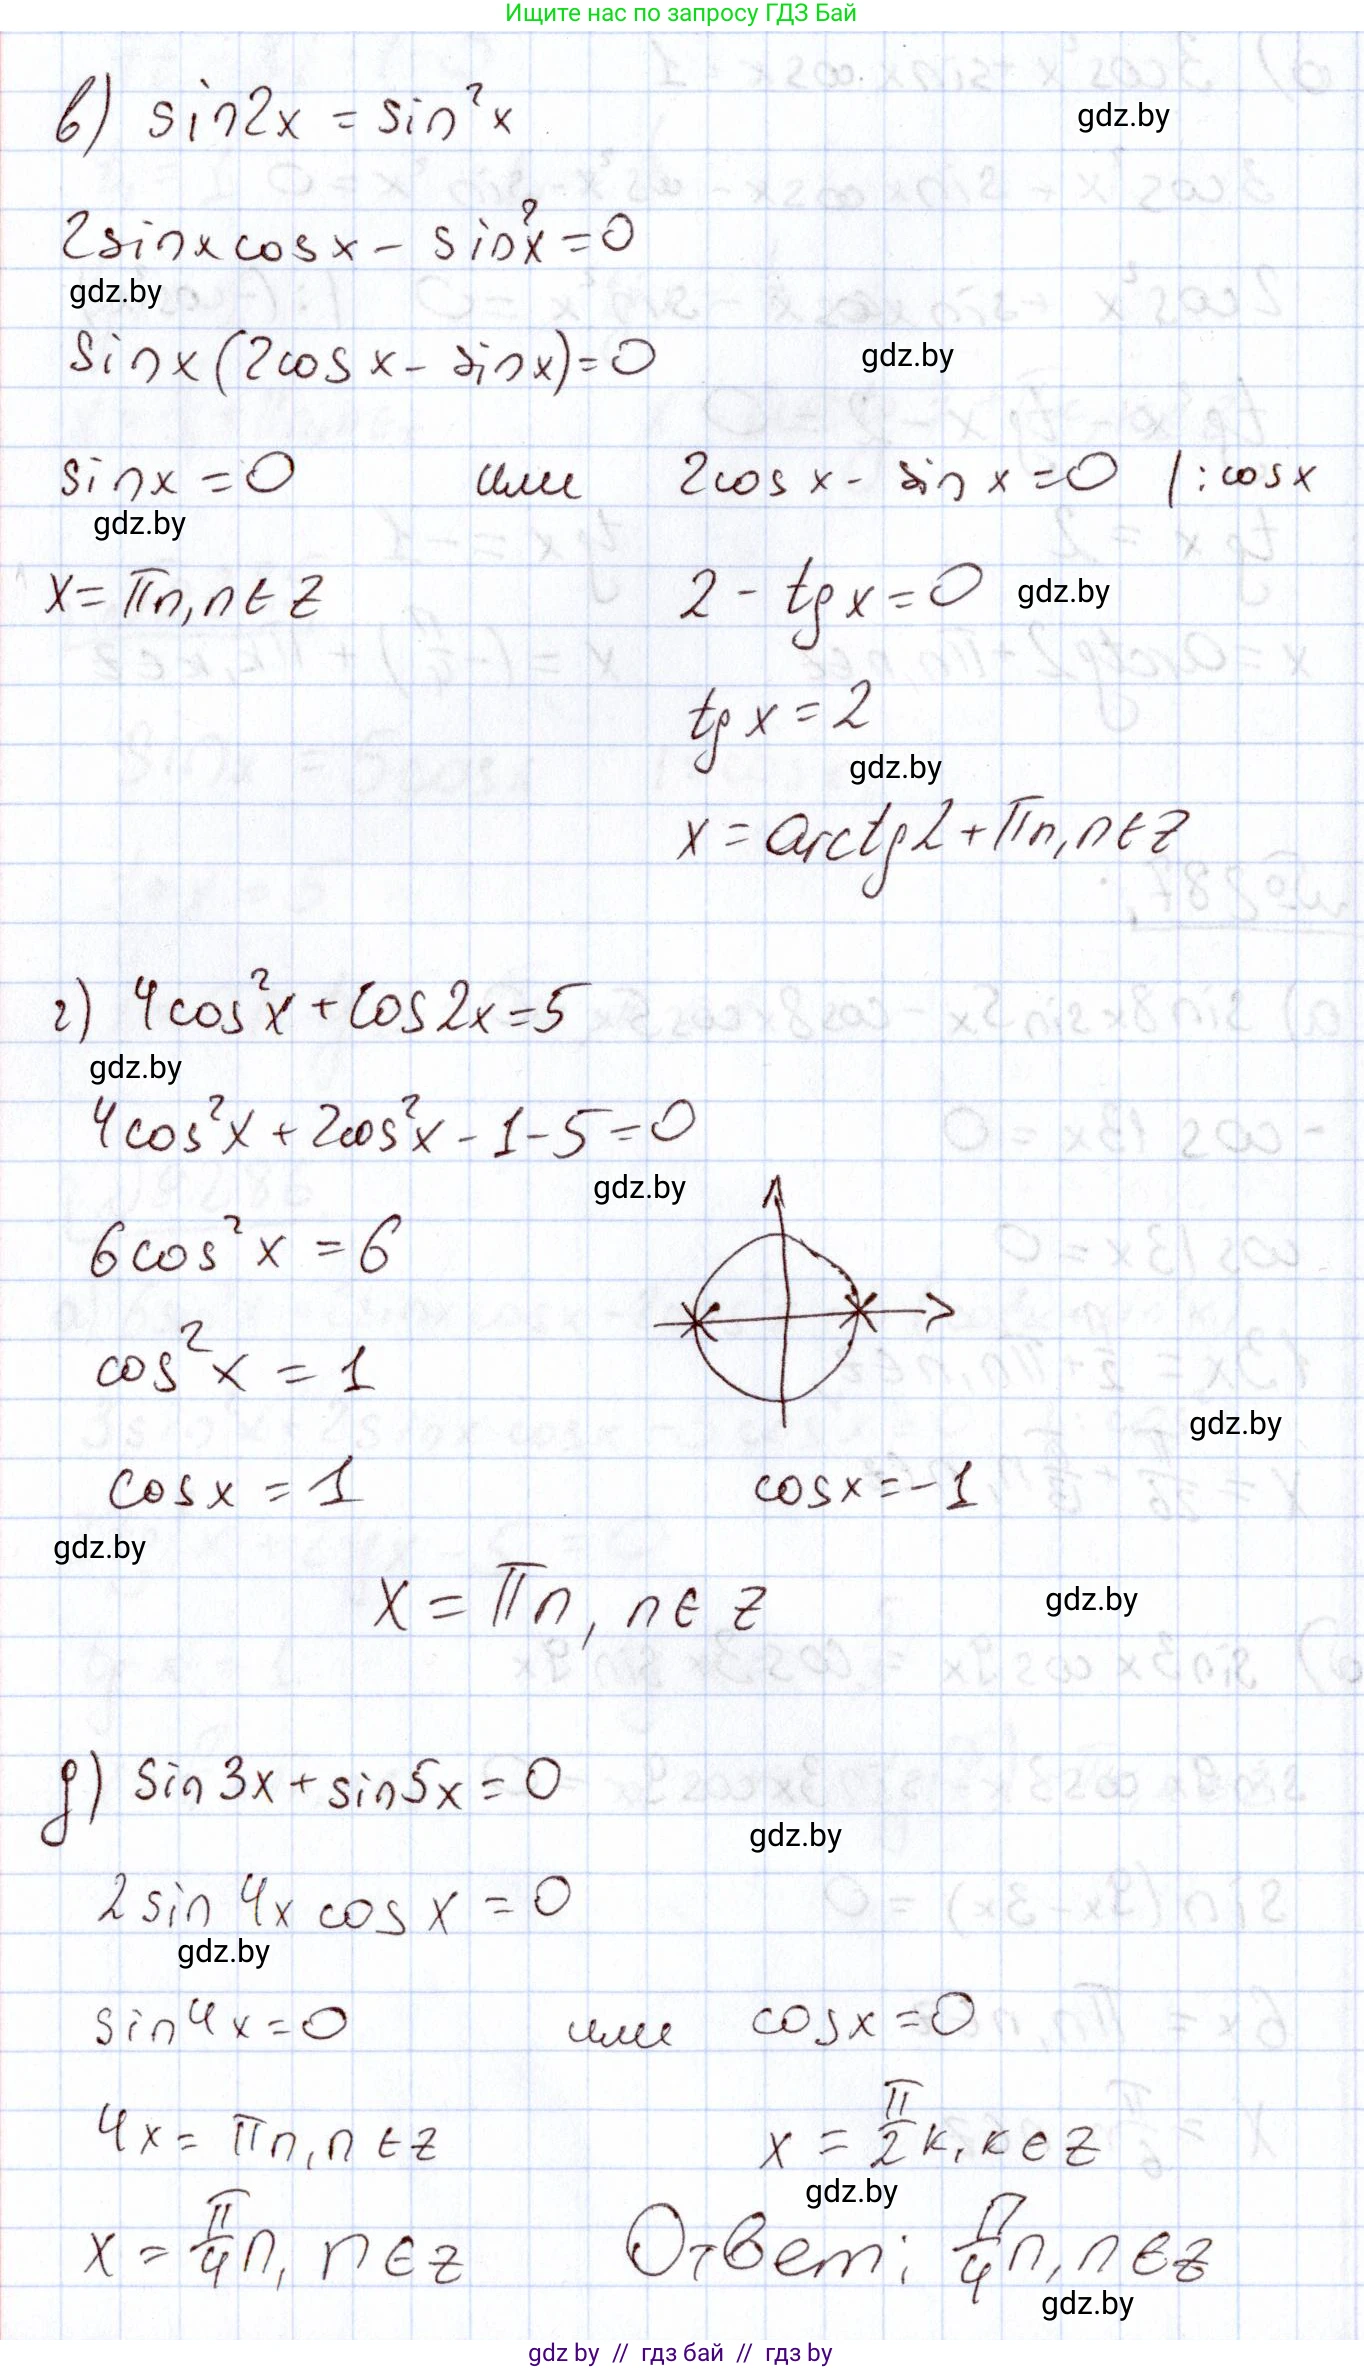 Ищите нас по запросу ГДЗ Бай
в) sin2x = sin²x
gdz.by
2sinxcosx - sin²x = 0
gdz.by
sinx(2cosx - sinx) = 0
gdz.by
sinx = 0 или 2cosx - sinx = 0 |:cosx
gdz.by
x = πn, n∈Z 2 - tgx = 0
gdz.by
tgx = 2
gdz.by
x = arctg2 + πn, n∈Z
г) 4cos²x + cos2x = 5
gdz.by
4cos²x + 2cos²x - 1 - 5 = 0
gdz.by
6cos²x = 6
cos²x = 1
gdz.by
cosx = 1 cosx = -1
gdz.by
x = πn, n∈Z
gdz.by
д) sin3x + sin5x = 0
gdz.by
2sin4x cosx = 0
gdz.by
sin4x = 0 или cosx = 0
4x = πn, n∈Z x = π/2 k, k∈Z
gdz.by
x = π/4 n, n∈Z Ответ: π/4 n, n∈Z
gdz.by
gdz by // гдз бай // гдз by